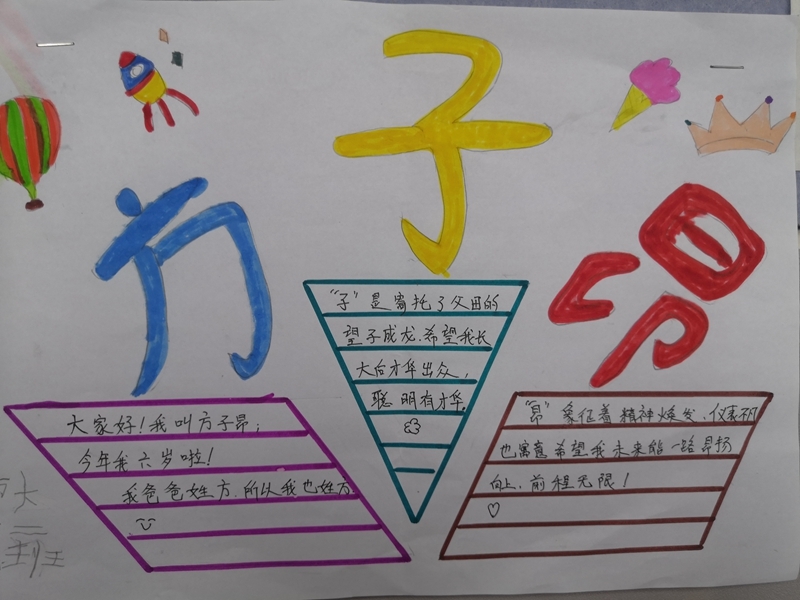 方
子
昂
大家好!我叫方子昂;
今年我六岁啦!
我爸爸姓方.所以我也姓方
"子"是寄托了父母的
望子成龙.希望我长
大后才华出众,
聪明有才华.
"昂"象征着精神焕发、仪表不凡
也寓意希望我未来能一路昂扬
向上,前程无限!
大
二
班